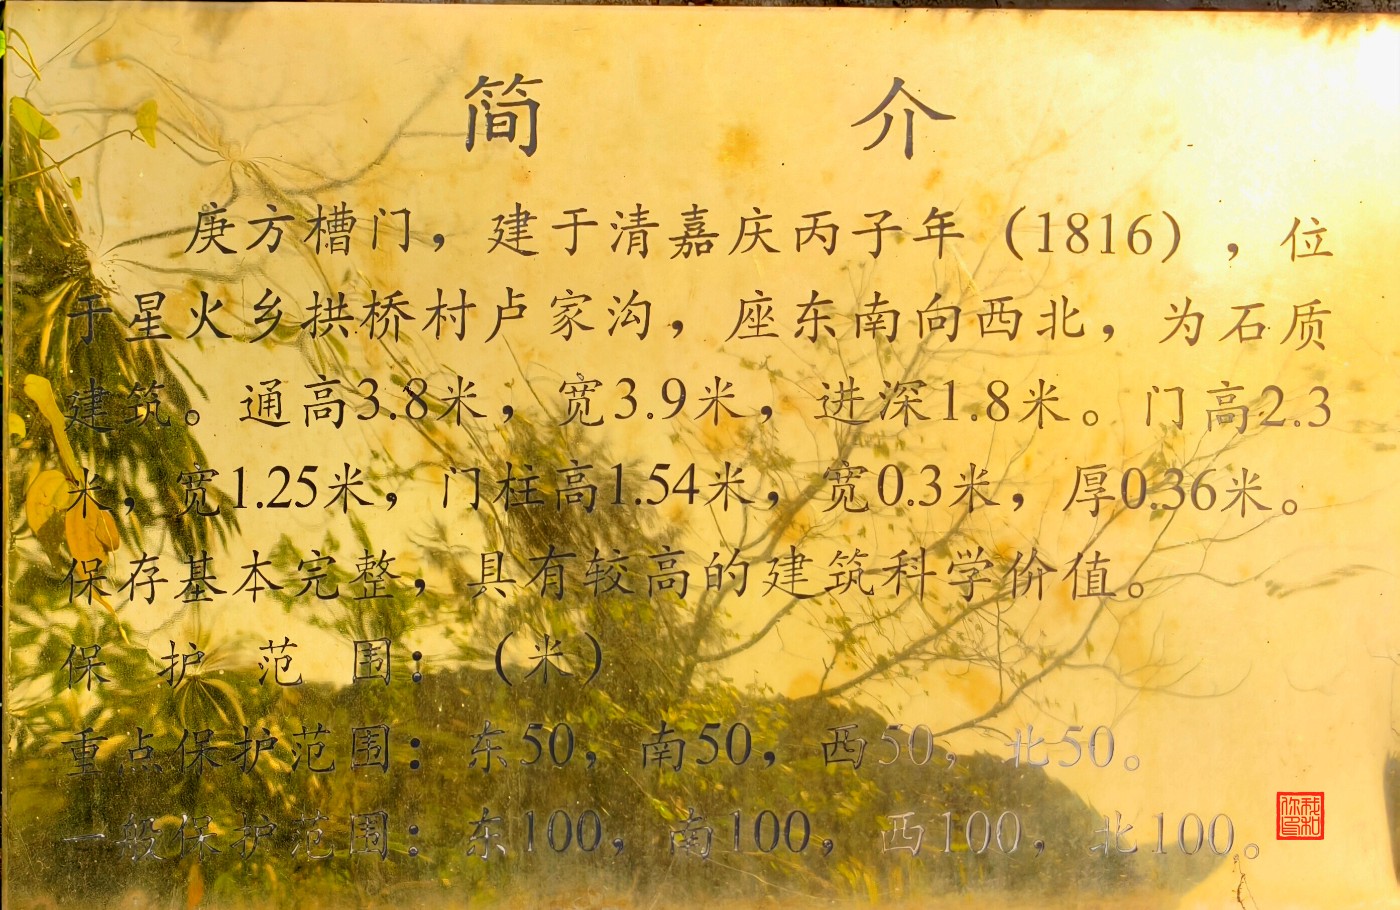 简 介
庚方槽门，建于清嘉庆丙子年（1816），位
于星火乡拱桥村卢家沟，座东南向西北，为石质
建筑。通高3.8米，宽3.9米，进深1.8米。门高2.3
米，宽1.25米，门柱高1.54米，宽0.3米，厚0.36米。
保存基本完整，具有较高的建筑科学价值。
保护范围：（米）
重点保护范围：东50，南50，西50，北50。
一般保护范围：东100，南100，西100，北100。